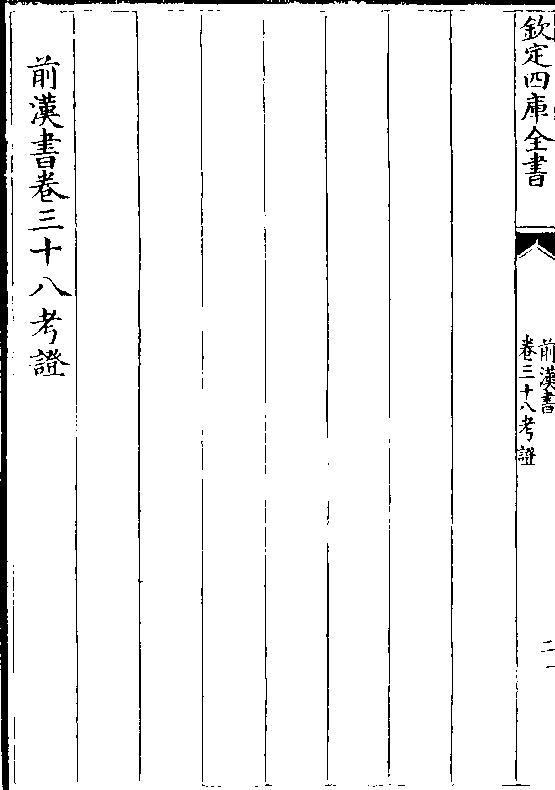 欽定四庫全書
前漢書
卷三十八考證
二
前漢書卷三十八考證